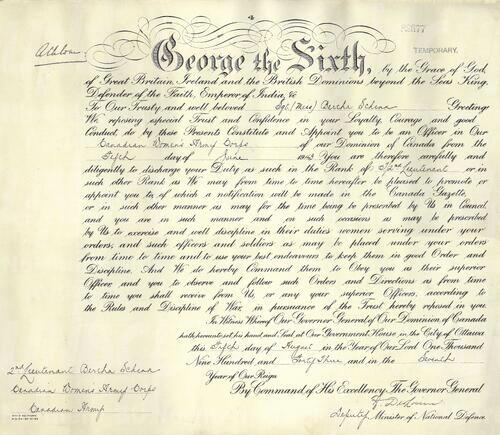 Athlone
TEMPORARY.
George the Sixth, by the Grace of God,
of Great Britain, Ireland and the British Dominions beyond the Seas King,
Defender of the Faith, Emperor of India, &c
To Our Trusty and well beloved Sgt. (Miss) Bertha Schina Greeting
We reposing especial Trust and Confidence in your Loyalty, Courage and good
Conduct, do by these Presents Constitute and Appoint you to be an Officer in Our
Canadian Womens Army Corps of our Dominion of Canada from the
Fifth day of June 1943 You are therefore carefully and
diligently to discharge your Duty as such in the Rank of 2nd Lieutenant or in
such other Rank as We may from time to time hereafter be pleased to promote or
appoint you to, of which a notification will be made in the Canada Gazette,
or in such other manner as may for the time being be prescribed by Us in Council,
and you are in such manner and on such occasions as may be prescribed
by Us to exercise and well discipline in their duties women serving under your
orders, and such officers and soldiers as may be placed under your orders
from time to time and to use your best endeavours to keep them in good Order and
Discipline. And We do hereby Command them to Obey you as their superior
Officer and you to observe and follow such Orders and Directions as from time
to time you shall receive from Us, or any your superior Officers, according to
the Rules and Discipline of War, in pursuance of the Trust hereby reposed in you.
In Witness Whereof Our Governor General of Our Dominion of Canada
hath hereunto set his hand and Seal at Our Government House in the City of Ottawa
this Fifth day of August in the Year of Our Lord One Thousand
Nine Hundred and Forty Three and in the Seventh
Year of Our Reign
By Command of His Excellency The Governor General
Deputy Minister of National Defence.
2nd Lieutenant Bertha Schina
Canadian Womens Army Corps
Canadian Army